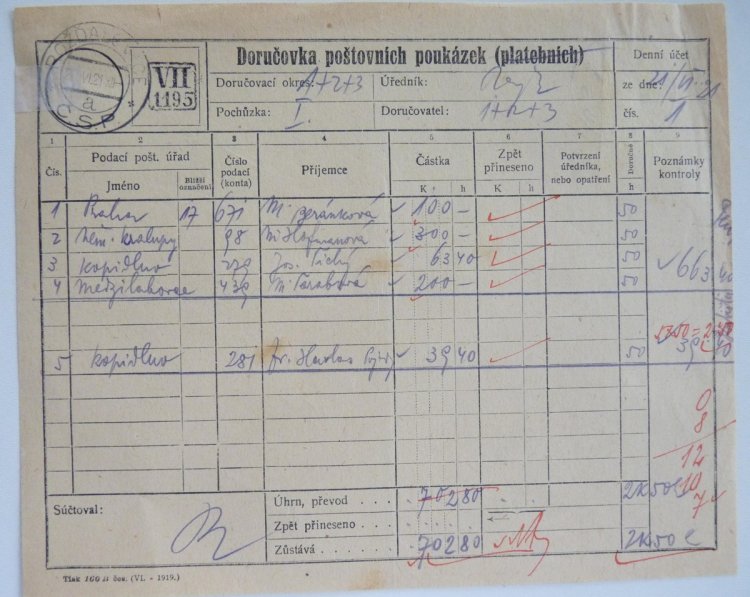 ROŽĎALOVICE
a
Č.S.P.
VII
1195
Doručovka poštovních poukázek (platebních)
Doručovací okres: 1+2+3 Úředník:
Pochůzka: I. Doručovatel: 1+2+3
Denní účet
ze dne: 21/VI. 21
čís. 1
1 2 3 4 5 6 7 8 9
Čís. Podací pošt. úřad Číslo podací (konta) Příjemce Částka Zpět přineseno Potvrzení úředníka, nebo opatření Doručné Poznámky kontroly
Jméno Bližší označení K h K h h
1 Praha 17 671 M. Beránková 100 — 50
2 Něm. Kralupy 98 M. Hofmanová 300 — 50
3 Kopidlno 279 Jos. Tichý 63 40 50 663 40
4 Medzilaborce 439 M. 200 — 50
5 Kopidlno 281 Fr. 39 40 50 39 40
0
8
12
10
7
Súčtoval:
Úhrn, převod . . . . 702 80 2K50
Zpět přineseno . . . .
Zůstává . . . . 702 80 2K50
Tisk 100 B čes. (VI. - 1919.)